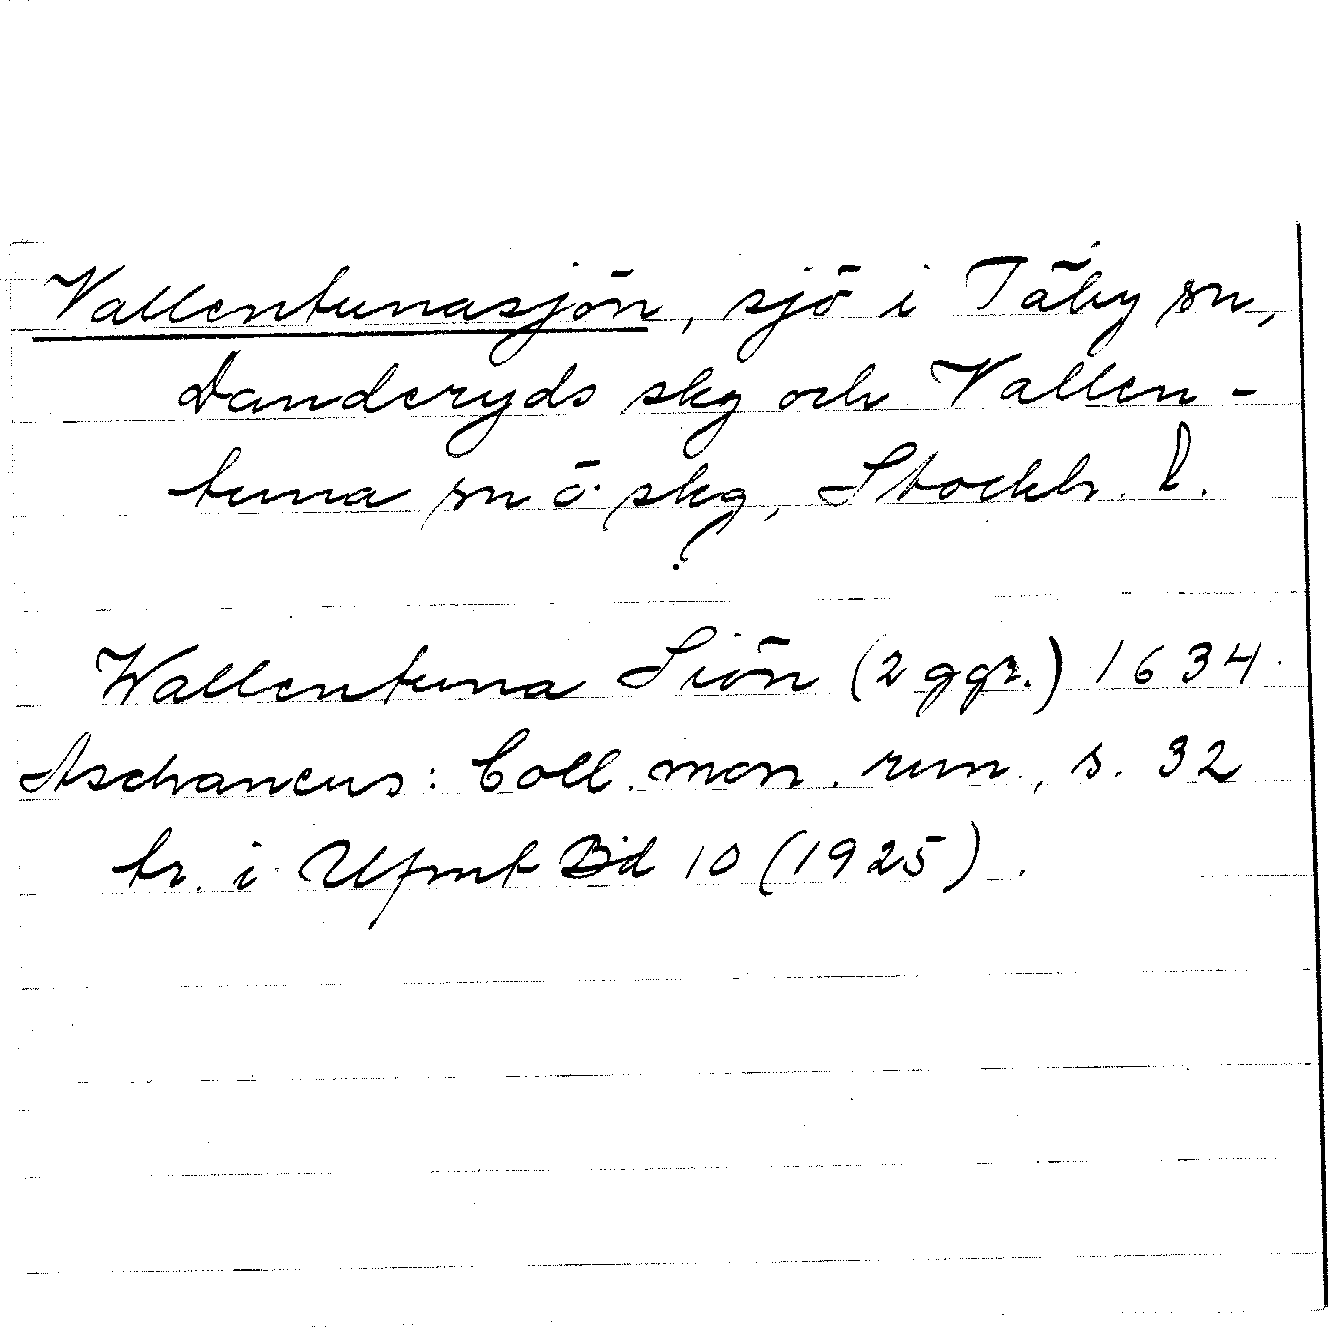 Vallentunasjön, sjö i Täby sn,
Danderyds skg och Vallen-
tuna sn o. skg, Stockh. l.
Wallentuna Siön (2 ggr.) 1634
Aschaneus: Coll. mon. run., s. 32
tr. i Ufmt Bd 10 (1925).